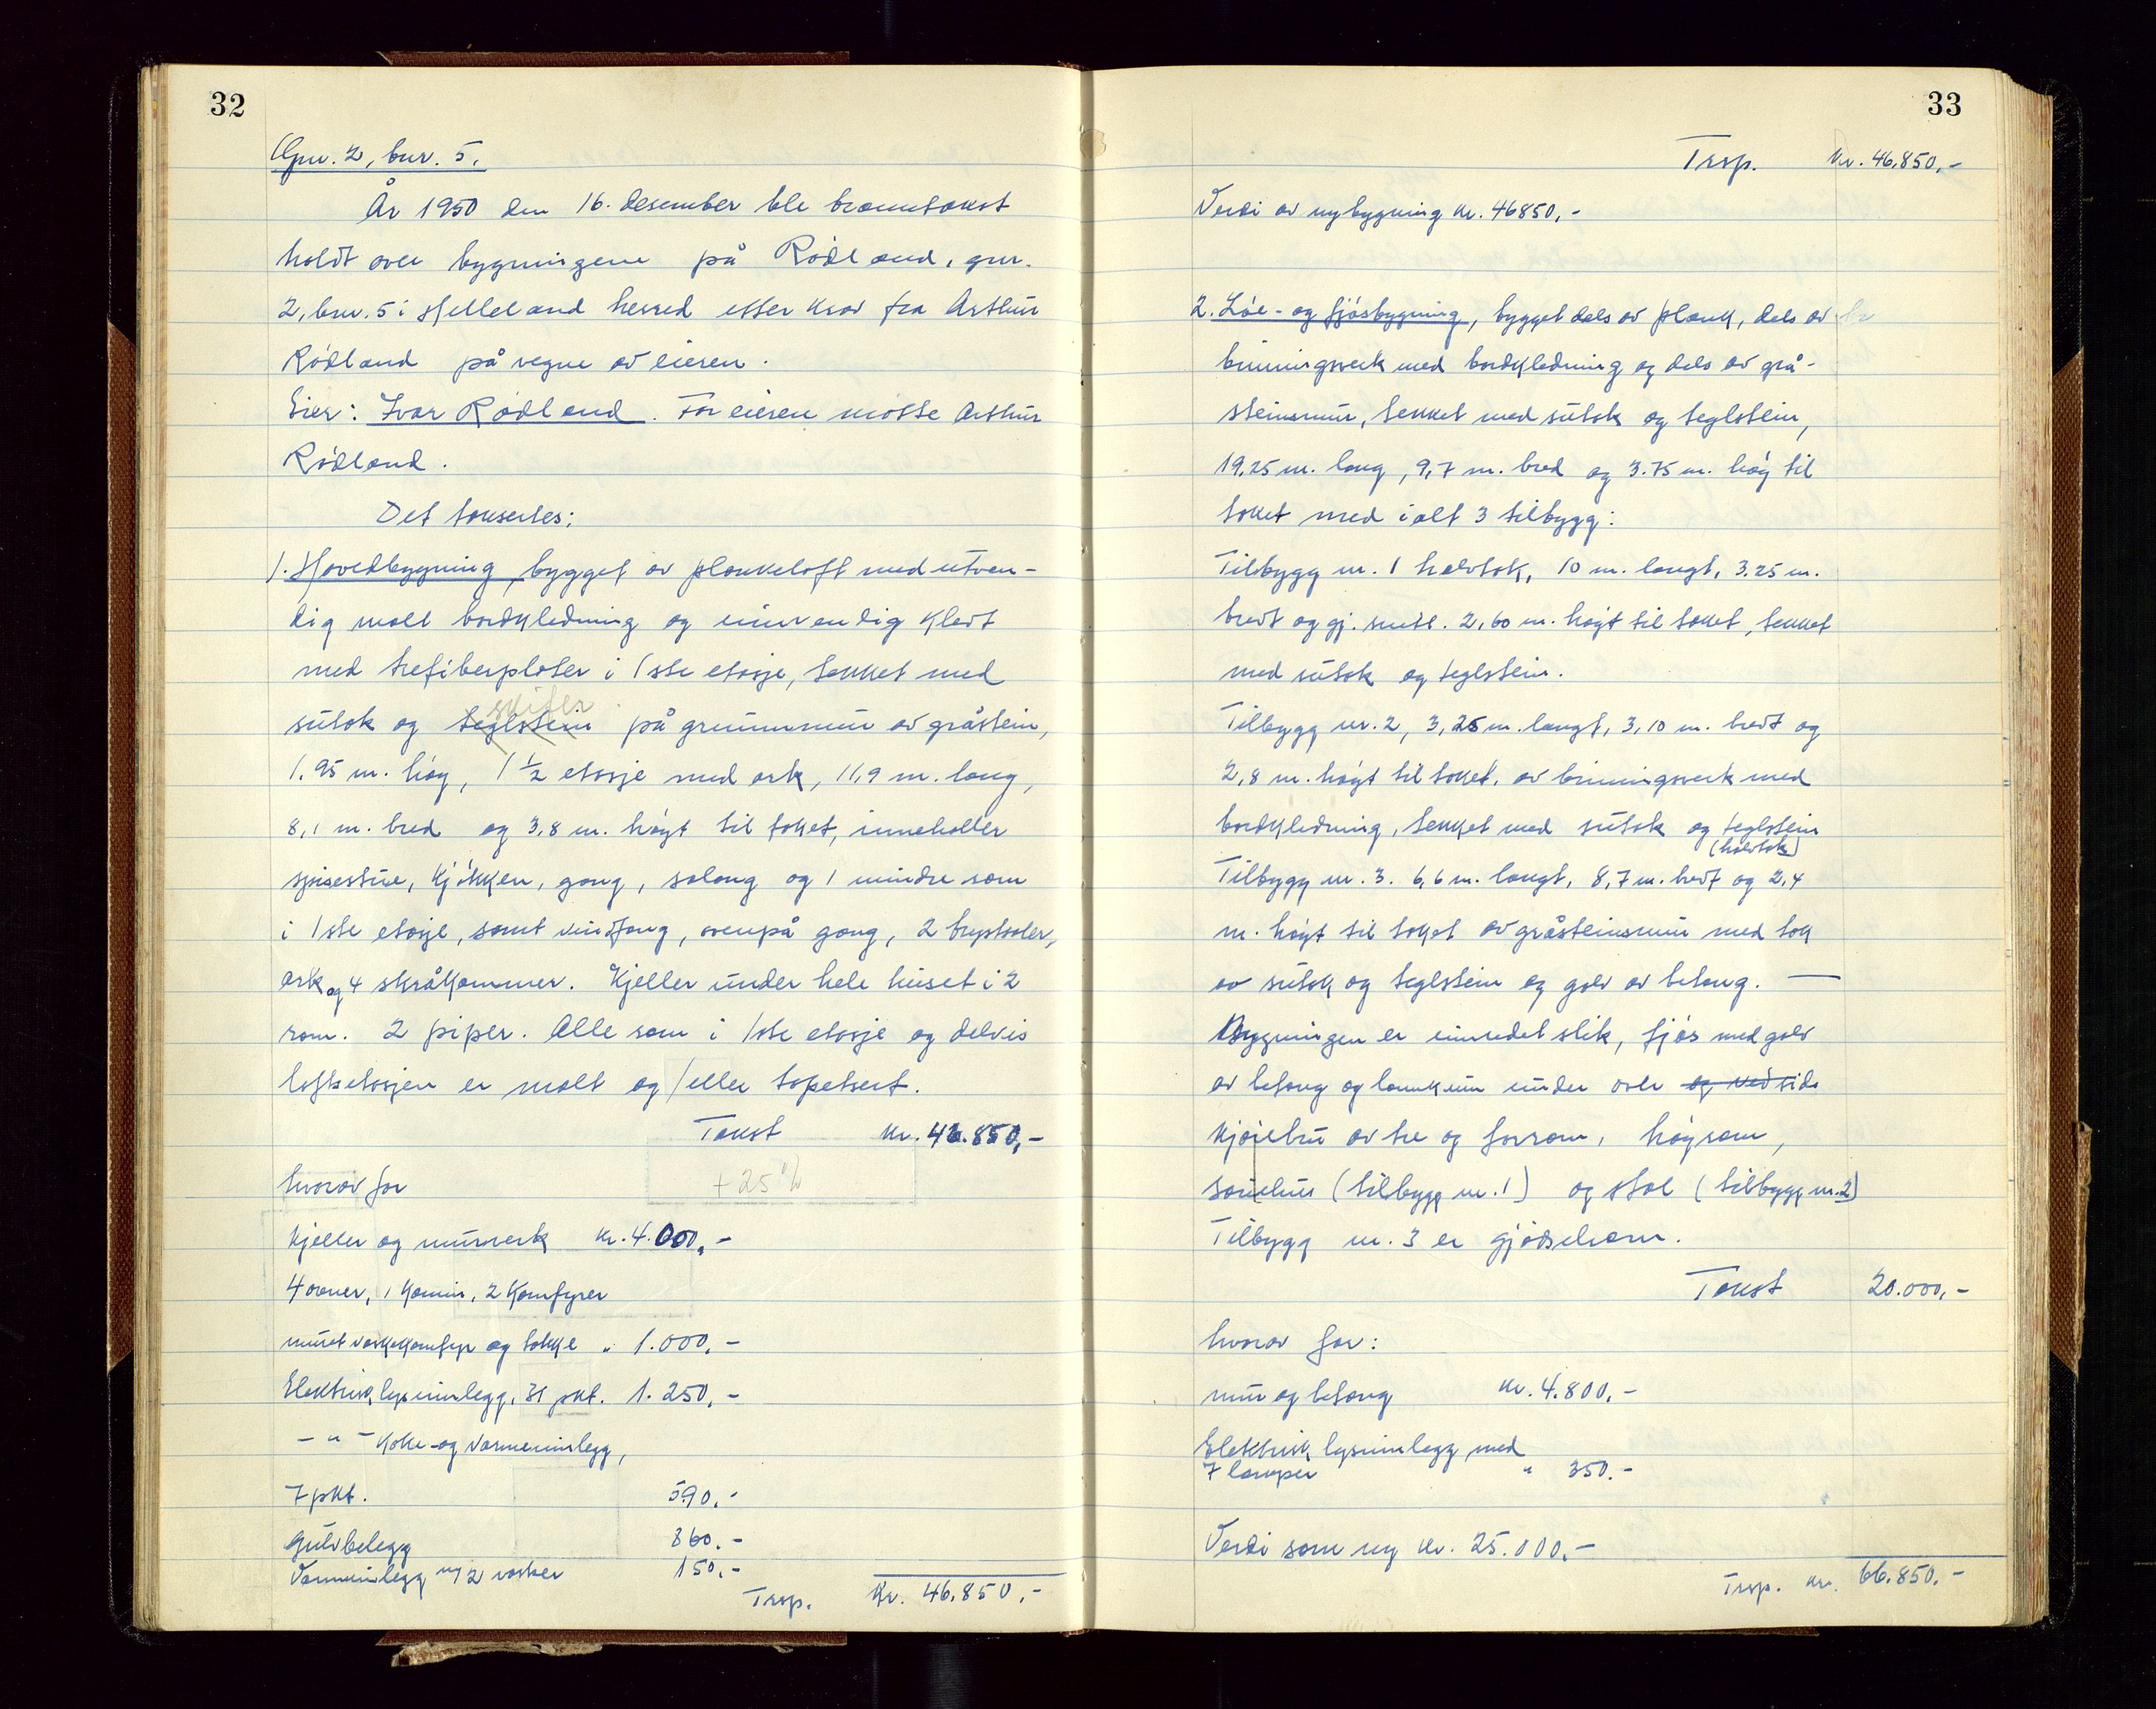 32
Gnr. 2, bnr. 5.
År 1950 den 16. desember ble branntakst
holdt over bygningene på Rødland, gnr.
2, bnr. 5 i Helleland herred etter krav fra Arthur
Rødland på vegne av eieren.
Eier: Ivar Rødland. For eieren møtte Arthur
Rødland.
Det taksertes:
1. Hovedbygning, bygget av plankeloft med utven-
dig malt bordkledning og innvendig kledt
med trefiberplater i 1ste etasje, tekket med
skifer
sutak og teglstein på grunnmur av gråstein,
1.95 m. høg, 1 1/2 etasje med ark, 11,9 m. lang,
8,1 m. bred og 3,8 m. høgt til taket, inneholder
spisestue, kjøkken, gang, salong og 1 mindre rom
i 1ste etasje, samt vindfang, ovenpå gang, 2 trypsaler,
ark og 4 skråkammer. Kjeller under hele huset i 2
rom. 2 piper. Alle rom i 1ste etasje og delvis
loftsetasjen er malt og/eller tapetsert.
Takst kr. 46.850,-
+25%
hvorav for
kjeller og murverk kr. 4.000,-
4 ovner, 1 kamin, 2 komfyrer
muret vaskekomfyr og takke " 1.000,-
Elektrisk lysinnlegg, 31 pkt. 1.250,-
- " - koke- og varmeinnlegg,
7 pkt. 590,-
Gulvbelegg 860,-
Vanninnlegg m/2 vasker 150,-
Trsp. kr. 46.850,-
33
Trsp. kr. 46.850,-
Verdi av nybygning kr. 46850,-
2. Løe- og fjøsbygning, bygget dels av plank, dels av
binningsverk med bordkledning og dels av grå-
steinsmur, tekket med sutak og teglstein,
19,25 m. lang, 9,7 m. bred og 3.75 m. høg til
taket med i alt 3 tilbygg:
Tilbygg nr. 1 halvtak, 10 m. langt, 3.25 m.
bredt og gj. snitt. 2,60 m. høgt til taket, tekket
med sutak og teglstein.
Tilbygg nr. 2, 3,25 m. langt, 3,10 m. bredt og
2,8 m. høgt til taket, av binningsverk med
bordkledning, tekket med sutak og teglstein
(halvtak)
Tilbygg nr. 3. 6,6 m. langt, 8,7 m. bredt og 2,4
m. høgt til taket av gråsteinsmur med tak
av sutak og teglstein og golv av betong. —
Bygningen er innredet slik, fjøs med golv
av betong og landkum under over og ved side
kjørebru av tre og forrom, høyrom,
sauehus (tilbygg nr. 1) og stal (tilbygg nr. 2)
Tilbygg nr. 3 er gjødselrom.
Takst 20.000,-
hvorav for:
mur og betong kr. 4.800,-
Elektrisk lysinnlegg med
7 lamper " 350.-
Verdi som ny kr. 25.000,-
Trsp. kr. 66.850,-